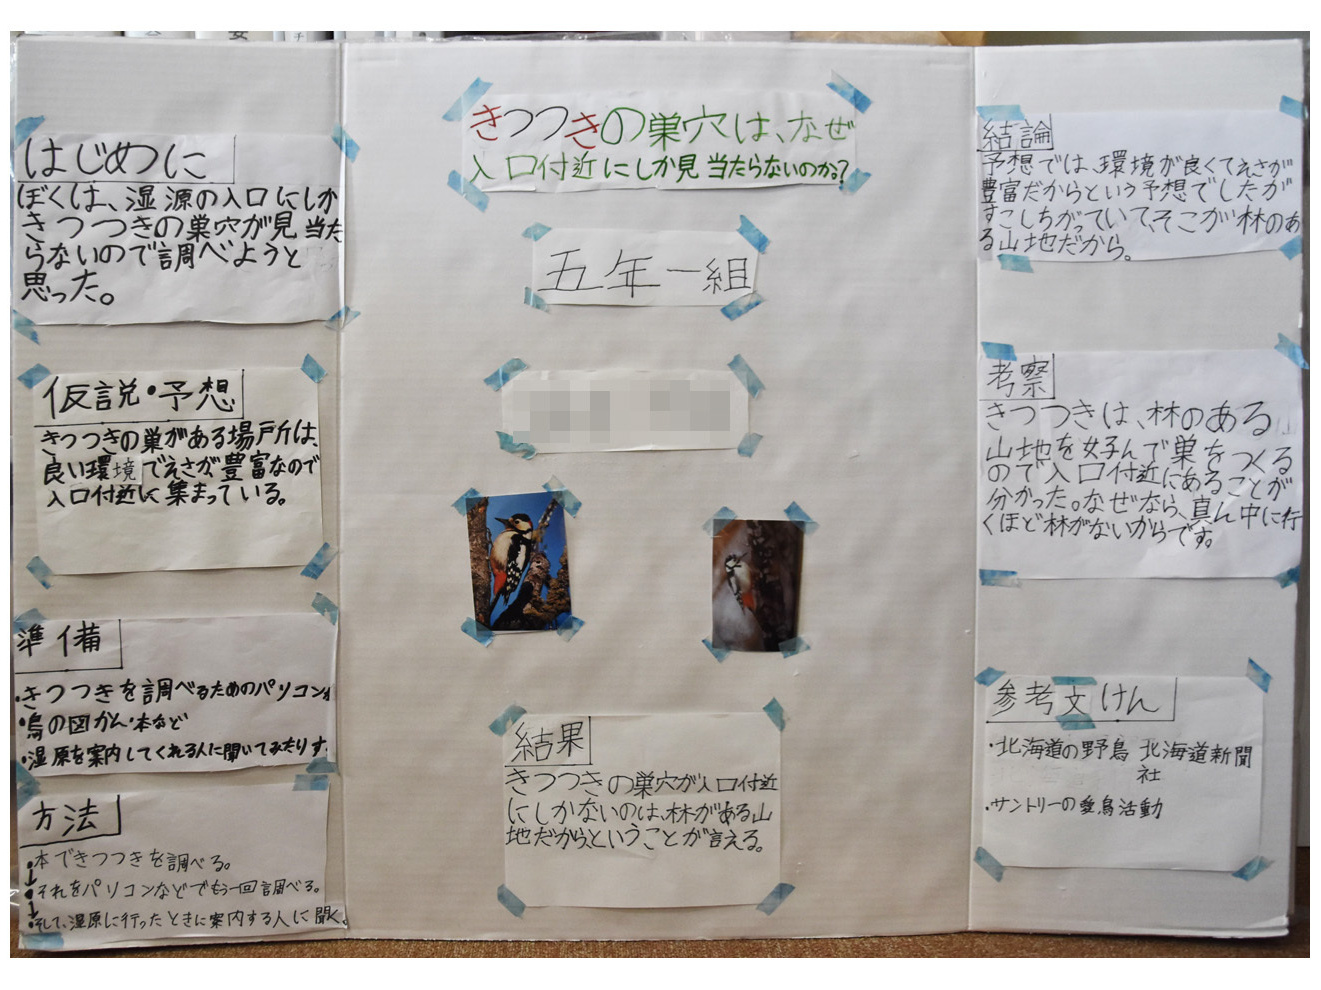 きつつきの巣穴は、なぜ
入口付近にしか見当たらないのか?
五年一組
はじめに
ぼくは、湿源の入口にしか
きつつきの巣穴が見当た
らないので調べようと
思った。
仮説・予想
きつつきの巣がある場所は、
良い環境でえさが豊富なので
入口付近に集まっている。
準備
・きつつきを調べるためのパソコン
・鳥の図かん・本など
・湿原を案内してくれる人に聞いてみたりす
方法
・本できつつきを調べる。
↓
・それをパソコンなどでもう一回調べる。
↓
・そして、湿原に行ったときに案内する人に聞く。
結果
きつつきの巣穴が入口付近
にしかないのは、林がある山
地だから、ということが言える。
結論
予想では、環境が良くてえさが
豊富だからという予想でしたが
すこしちがっていて、そこが林のあ
る山地だから。
考察
きつつきは、林のある
山地を好んで巣をつくる
ので入口付近にあることが
分かった。なぜなら、真ん中に行
くほど林がないからです。
参考文けん
・北海道の野鳥 北海道新聞
社
・サントリーの愛鳥活動